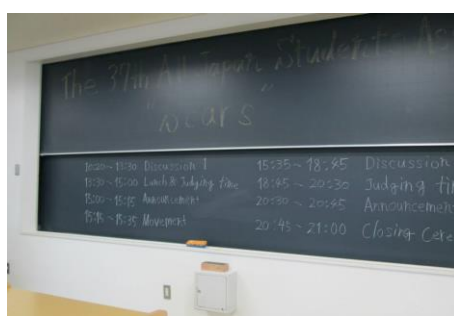 The 37th All Japan Students
10:20~13:30 Discussion 1
13:30~15:00 Lunch & Judging time
15:00~15:15 Announcement
15:15~15:35 Movement
15:35~18:45 Discussion
18:45~20:30 Judging ti
20:30~20:45 Announcemen
20:45~21:00 Closing Cere